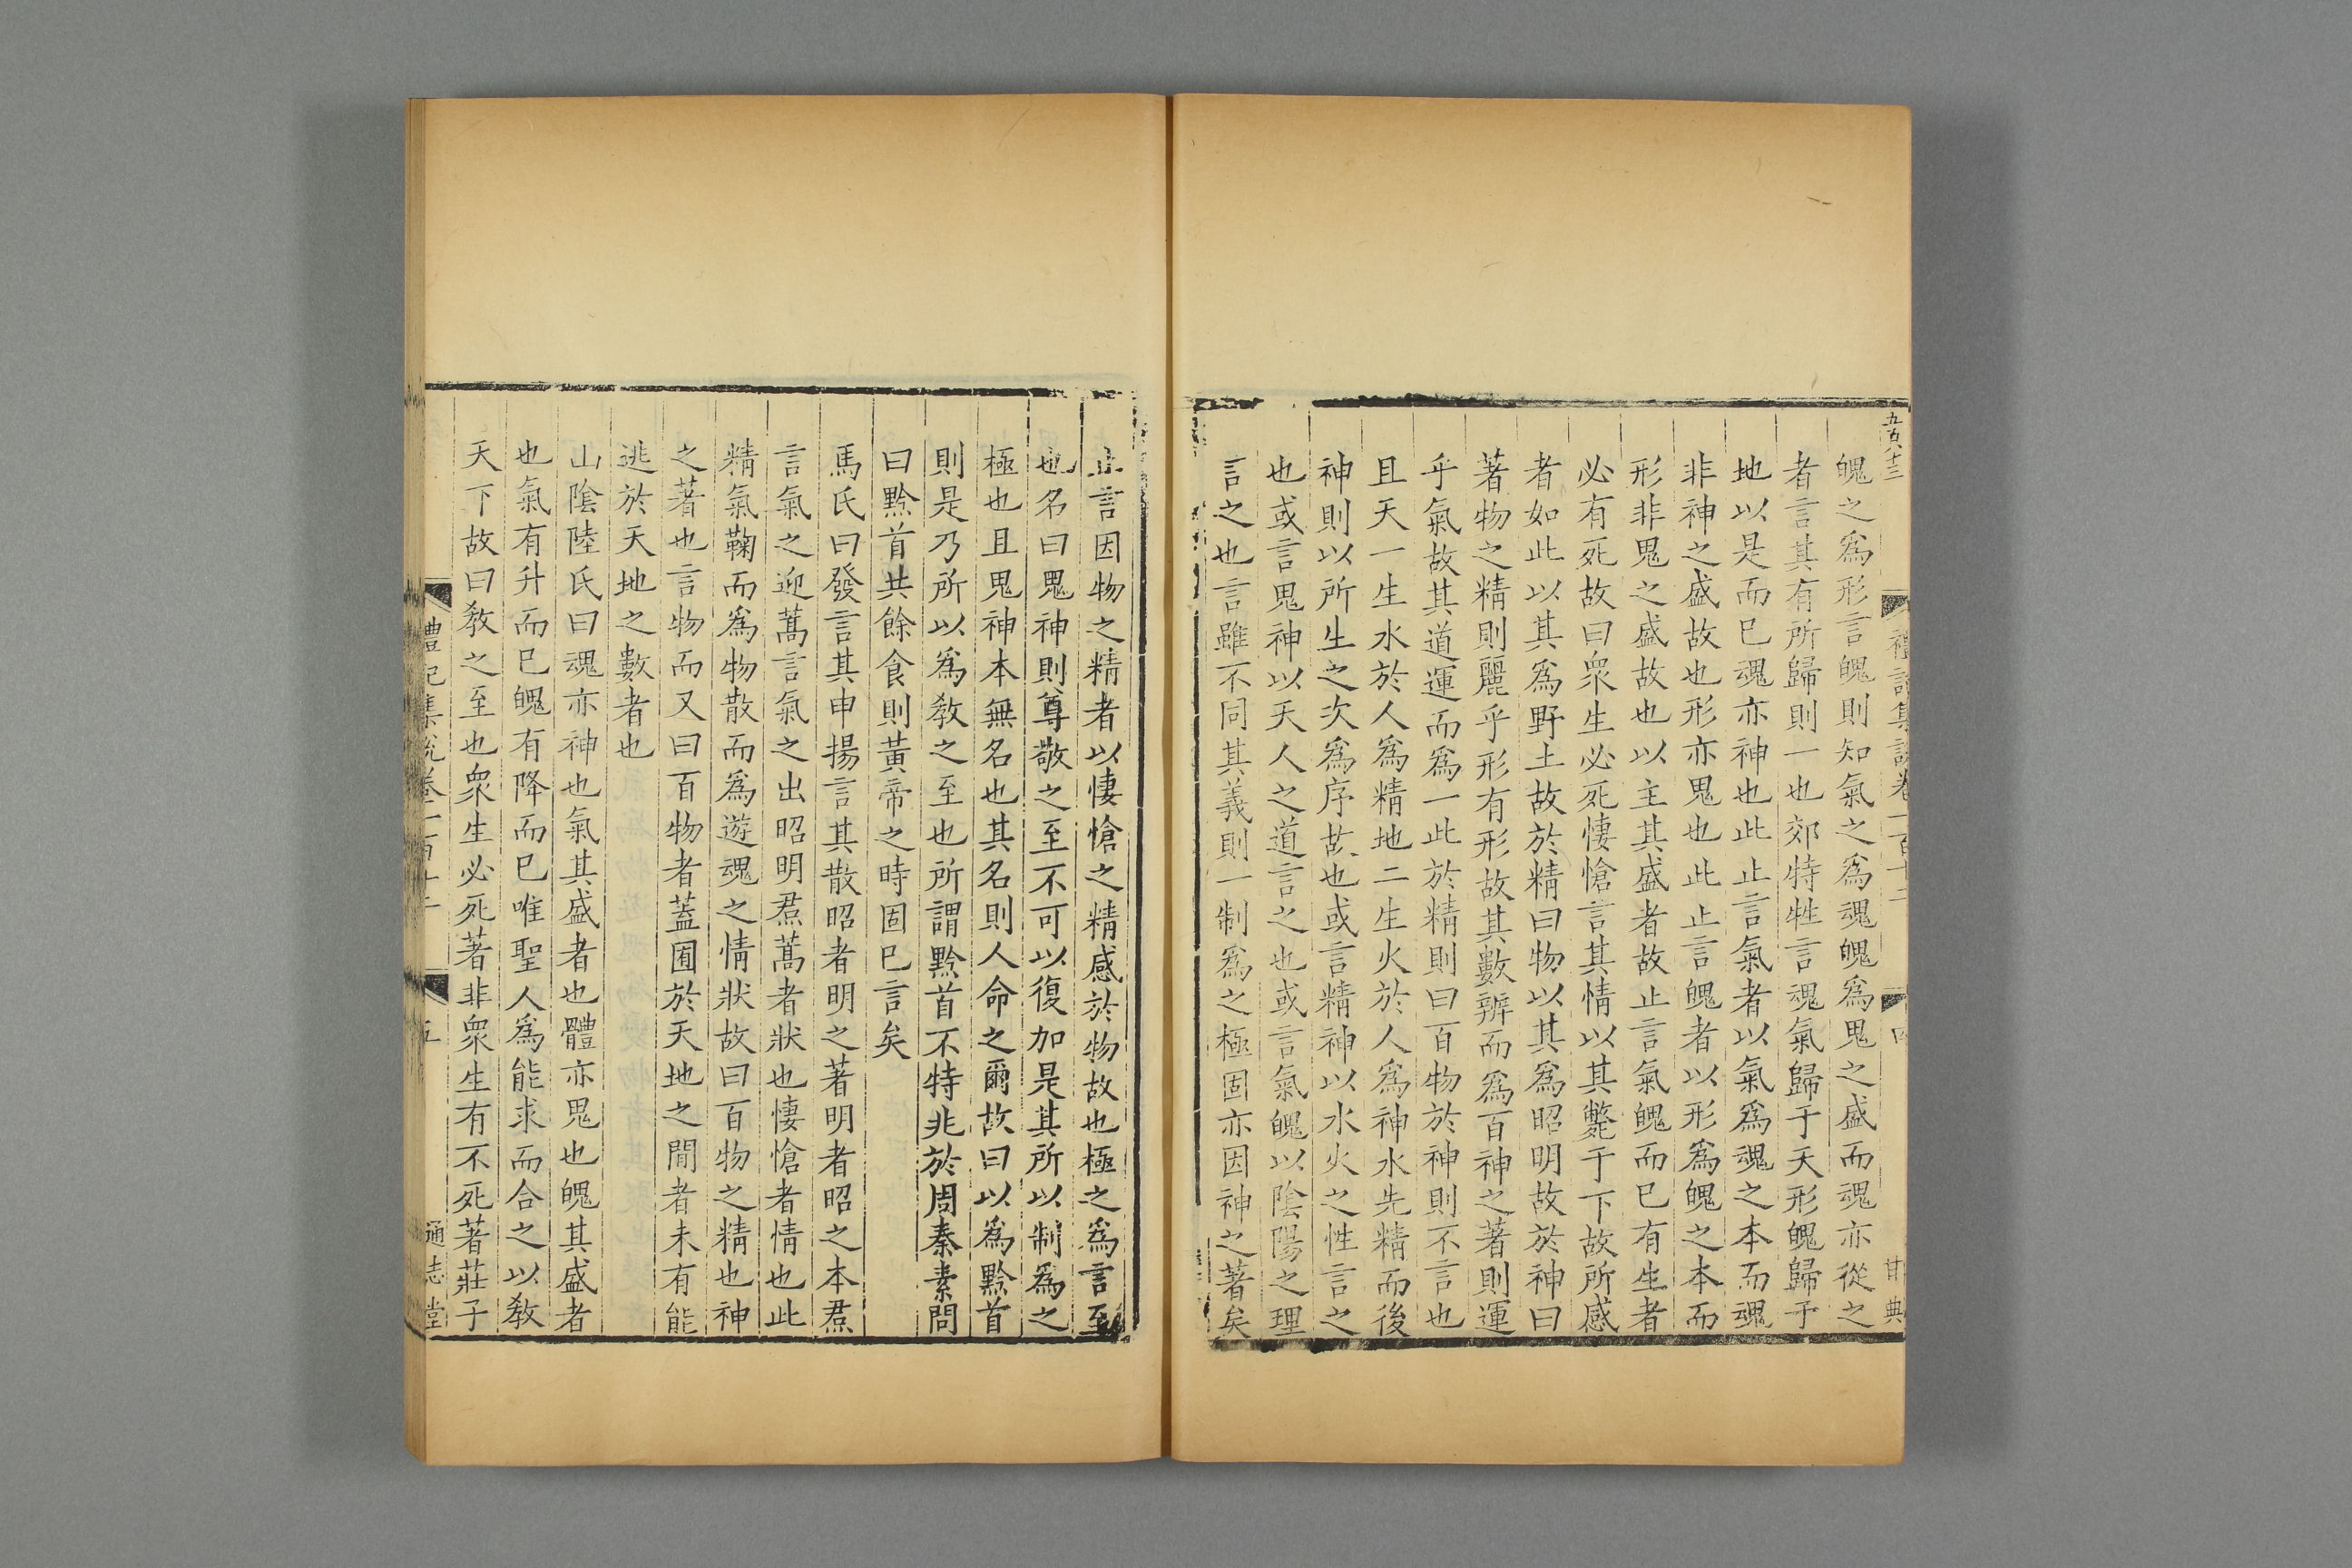 五百八十三
禮記集說卷一百十二
四
甘典
魄之爲形言魄則知氣之爲魂魄爲鬼之盛而魂亦從之
者言其有所歸則一也郊特牲言魂氣歸于天形魄歸于
地以是而已魂亦神也此止言氣者以氣爲魂之本而魂
非神之盛故也形亦鬼也此止言魄者以形爲魄之本而
形非鬼之盛故也以主其盛者故止言氣魄而已有生者
必有死故曰衆生必死悽愴言其情以其斃于下故所感
者如此以其爲野土故於精曰物以其爲昭明故於神曰
著物之精則麗乎形有形故其數辨而爲百神之著則運
乎氣故其道運而爲一此於精則曰百物於神則不言也
且天一生水於人爲精地二生火於人爲神水先精而後
神則以所生之次爲序故也或言精神以水火之性言之
也或言鬼神以天人之道言之也或言氣魄以陰陽之理
言之也言雖不同其義則一制爲之極固亦因神之著矣
止言因物之精者以悽愴之精感於物故也極之爲言至
也名曰鬼神則尊敬之至不可以復加是其所以制爲之
極也且鬼神本無名也其名則人命之爾故曰以爲黔首
則是乃所以爲敎之至也所謂黔首不特兆於周秦素問
曰黔首共餘食則黃帝之時固已言矣
馬氏曰發言其申揚言其散昭者明之著明者昭之本焄
言氣之迎蒿言氣之出昭明焄蒿者狀也悽愴者情也此
精氣鞠而爲物散而爲遊魂之情狀故曰百物之精也神
之著也言物而又曰百物者蓋囿於天地之閒者未有能
逃於天地之數者也
山陰陸氏曰魂亦神也氣其盛者也體亦鬼也魄其盛者
也氣有升而已魄有降而已唯聖人爲能求而合之以敎
天下故曰敎之至也衆生必死著非衆生有不死著莊子
禮記集說卷一百十二
五
通志堂